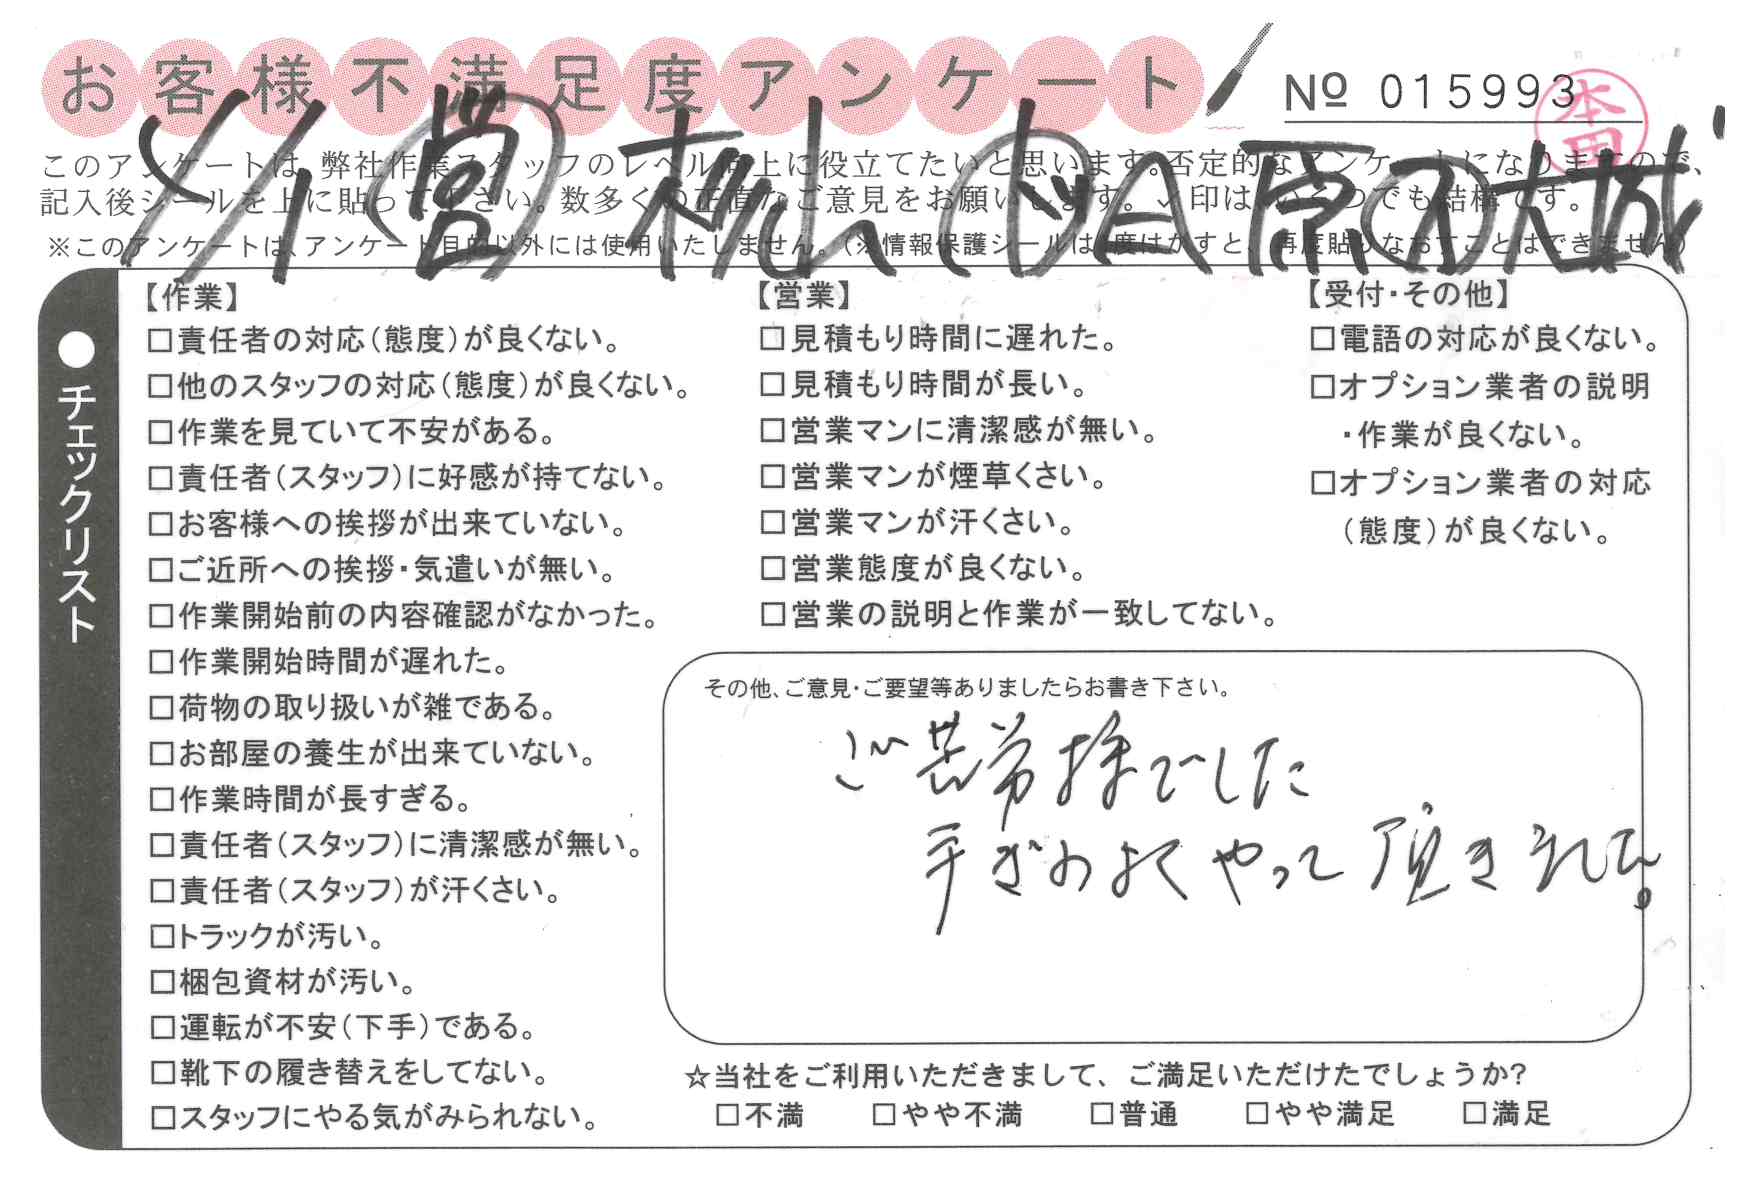 お客様不満足度アンケート
№ 015993
本田
このアンケートは、弊社作業スタッフのレベル向上に役立てたいと思います。否定的なアンケートになりますので、
記入後シールを上に貼って下さい。数多くの正直なご意見をお願いします。✓印は、いくつでも結構です。
※このアンケートは、アンケート目的以外には使用いたしません。(※情報保護シールは1度はがすと、再度貼りなおすことはできません)
1/1 営 桃山 原田 大城
●チェックリスト
【作業】
□責任者の対応(態度)が良くない。
□他のスタッフの対応(態度)が良くない。
□作業を見ていて不安がある。
□責任者(スタッフ)に好感が持てない。
□お客様への挨拶が出来ていない。
□ご近所への挨拶・気遣いが無い。
□作業開始前の内容確認がなかった。
□作業開始時間が遅れた。
□荷物の取り扱いが雑である。
□お部屋の養生が出来ていない。
□作業時間が長すぎる。
□責任者(スタッフ)に清潔感が無い。
□責任者(スタッフ)が汗くさい。
□トラックが汚い。
□梱包資材が汚い。
□運転が不安(下手)である。
□靴下の履き替えをしてない。
□スタッフにやる気がみられない。
【営業】
□見積もり時間に遅れた。
□見積もり時間が長い。
□営業マンに清潔感が無い。
□営業マンが煙草くさい。
□営業マンが汗くさい。
□営業態度が良くない。
□営業の説明と作業が一致してない。
【受付・その他】
□電話の対応が良くない。
□オプション業者の説明
・作業が良くない。
□オプション業者の対応
(態度)が良くない。
その他、ご意見・ご要望等ありましたらお書き下さい。
ご苦労様でした
手ぎわよくやって頂きました。
☆当社をご利用いただきまして、ご満足いただけたでしょうか?
□不満 □やや不満 □普通 □やや満足 □満足